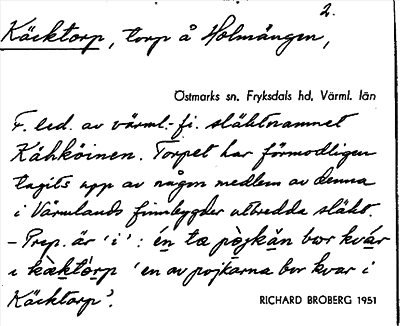 2.
Käcktorp, torp å Holmången,
Östmarks sn. Fryksdals hd, Värml. län
F. led. av värml.-fi. släktnamnet
Kähköinen. Torpet har förmodligen
tagits upp av någon medlem av denna
i Värmlands finnbygder utbredda släkt.
– Prep. är 'i': én tæ pòjkän bor kvár
i kæ̀którp 'en av pojkarna bor kvar i
Käcktorp'.
RICHARD BROBERG 1951